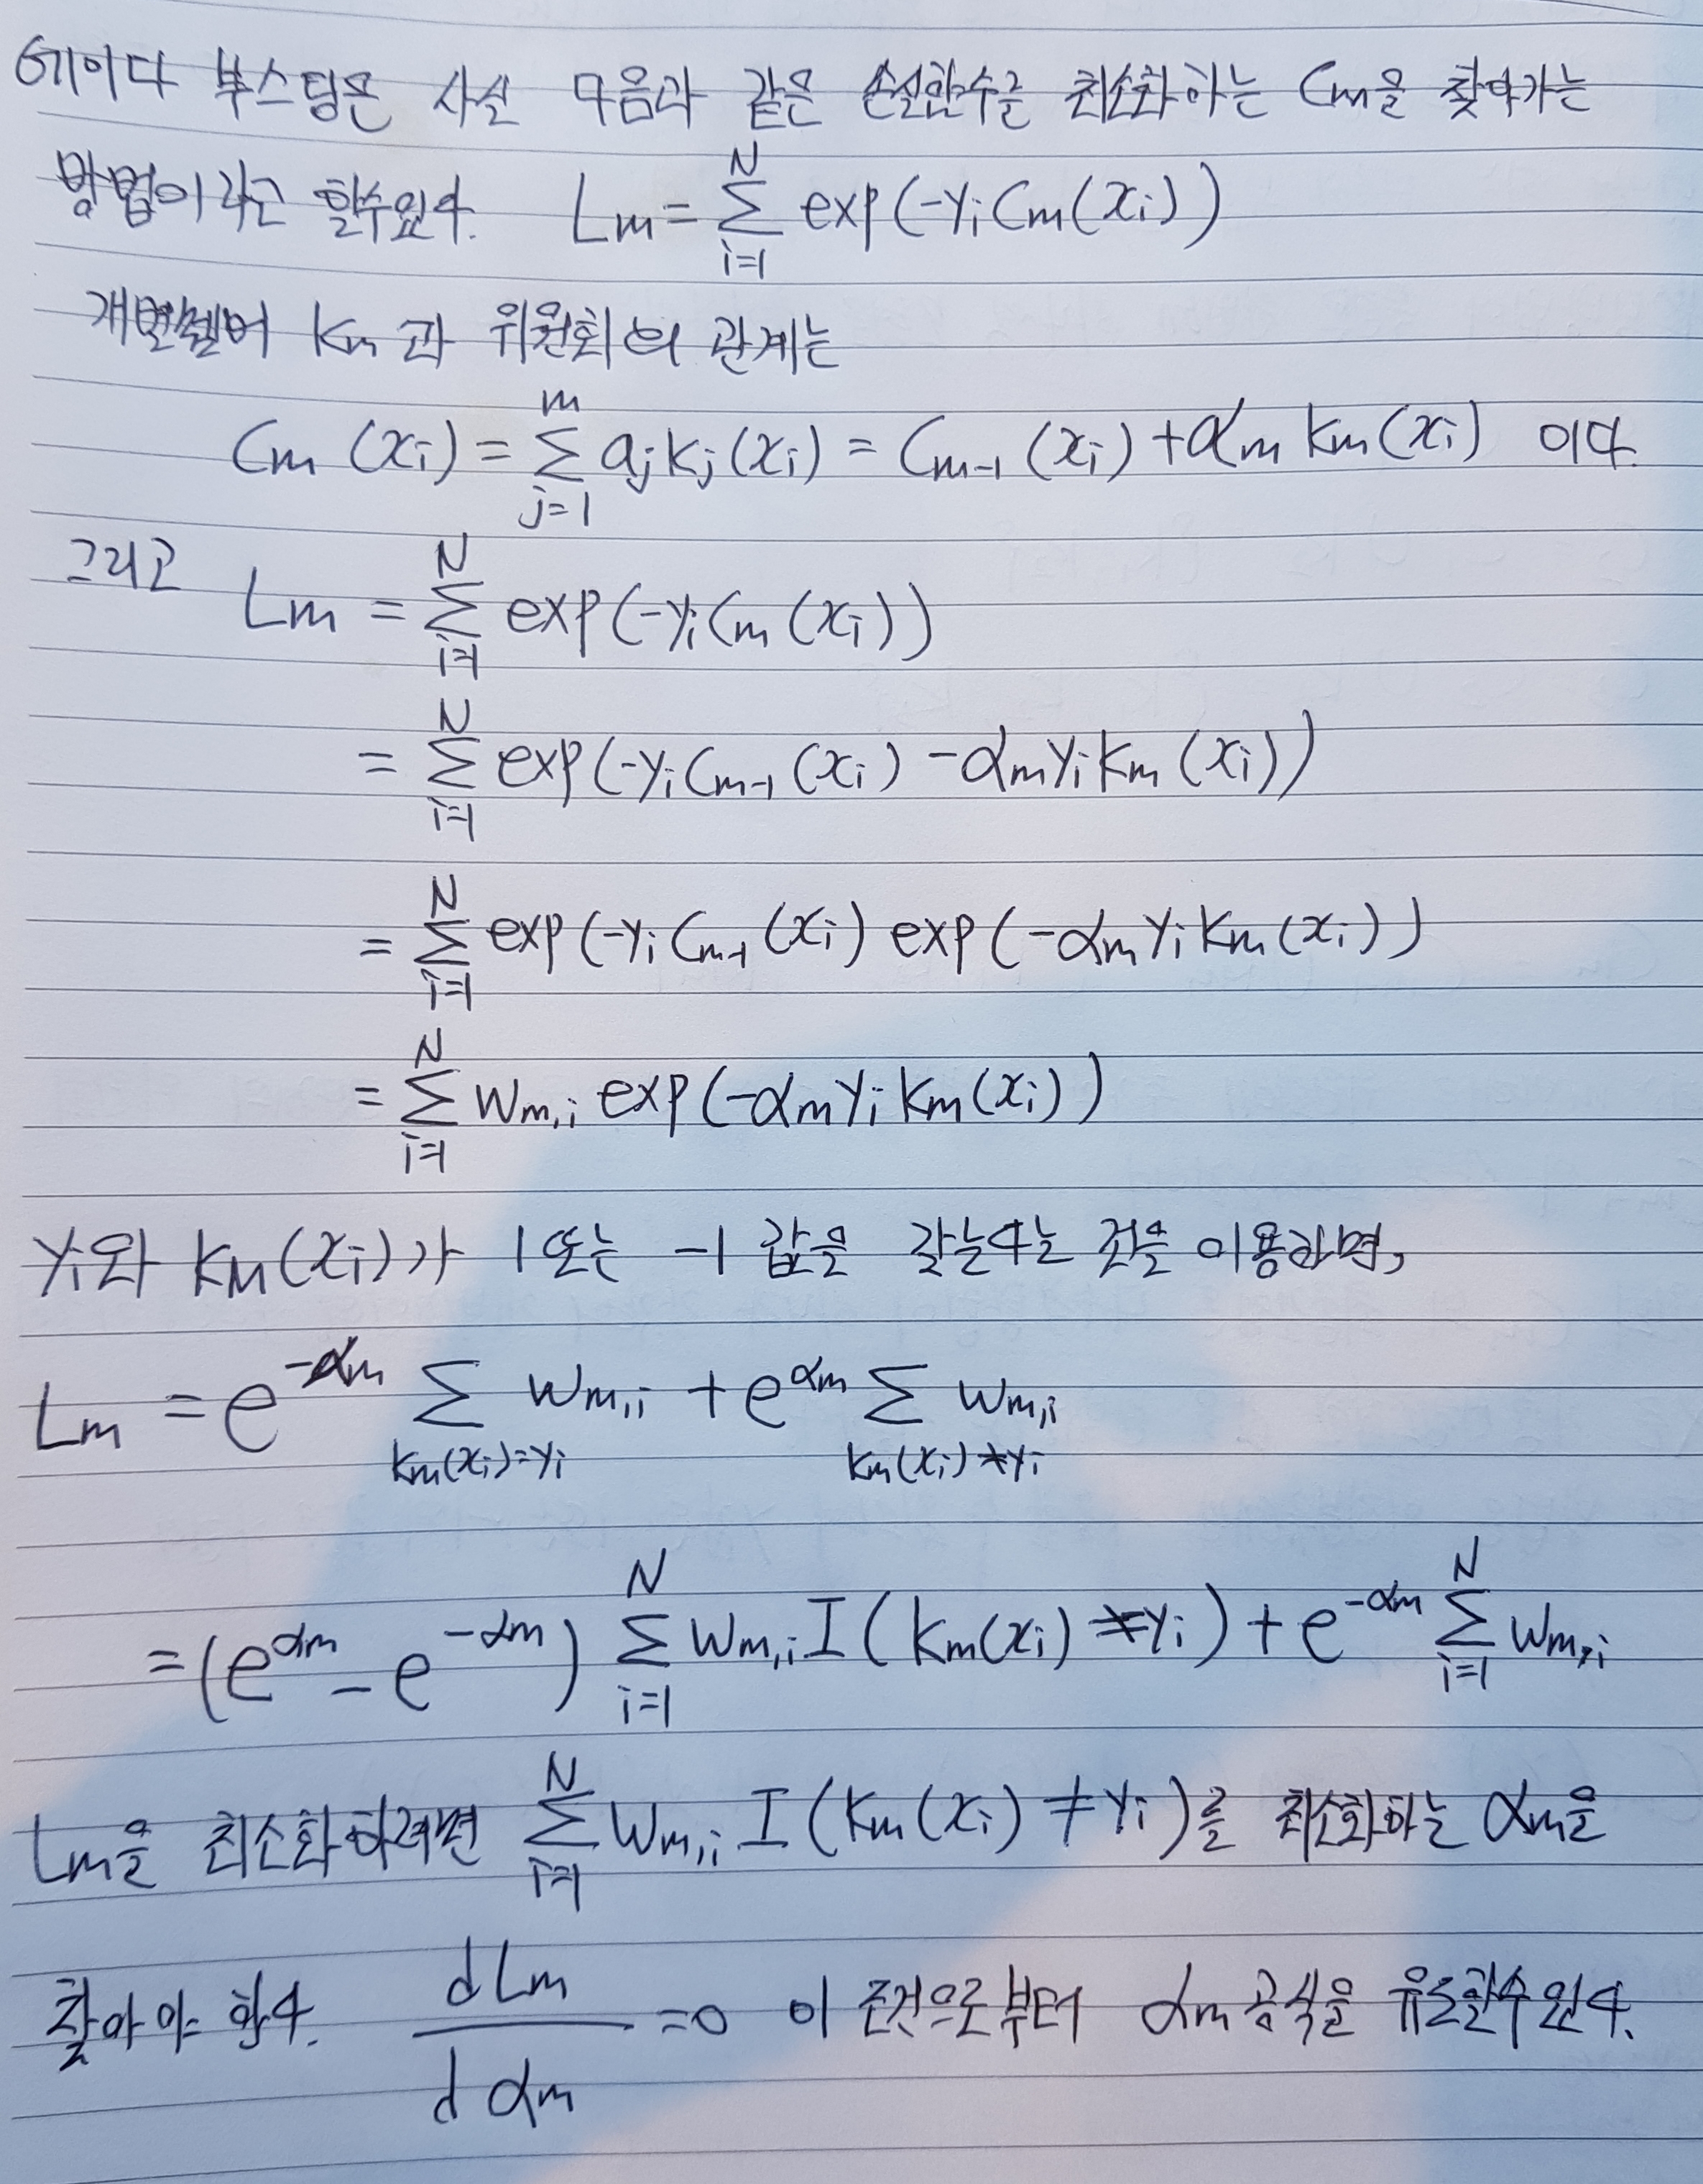 에이다 부스팅은 사실 다음과 같은 손실함수를 최소화 하는 Cm을 찾아가는
방법이라고 할수있다. Lm = Σ_{i=1}^{N} exp(-yi Cm(xi))
개별멤버 km과 위원회의 관계는
Cm(xi) = Σ_{j=1}^{m} aj kj(xi) = Cm-1(xi) + αm km(xi) 이다.
그리고 Lm = Σ_{i=1}^{N} exp(-yi Cm(xi))
= Σ_{i=1}^{N} exp(-yi Cm-1(xi) - αm yi km(xi))
= Σ_{i=1}^{N} exp(-yi Cm-1(xi) exp(-αm yi km(xi))
= Σ_{i=1}^{N} wm,i exp(-αm yi km(xi))
yi와 km(xi)가 1 또는 -1 값을 갖는다는 것을 이용하면,
Lm = e^{-αm} Σ_{km(xi)=yi} wm,i + e^{αm} Σ_{km(xi)≠yi} wm,i
= (e^{αm} - e^{-αm}) Σ_{i=1}^{N} wm,i I(km(xi)≠yi) + e^{-αm} Σ_{i=1}^{N} wm,i
Lm을 최소화하려면 Σ_{i=1}^{N} wm,i I(km(xi)≠yi)를 최소화하는 αm을
찾아야 한다. dLm/dαm = 0 이 조건으로부터 αm 공식을 유도할수있다.